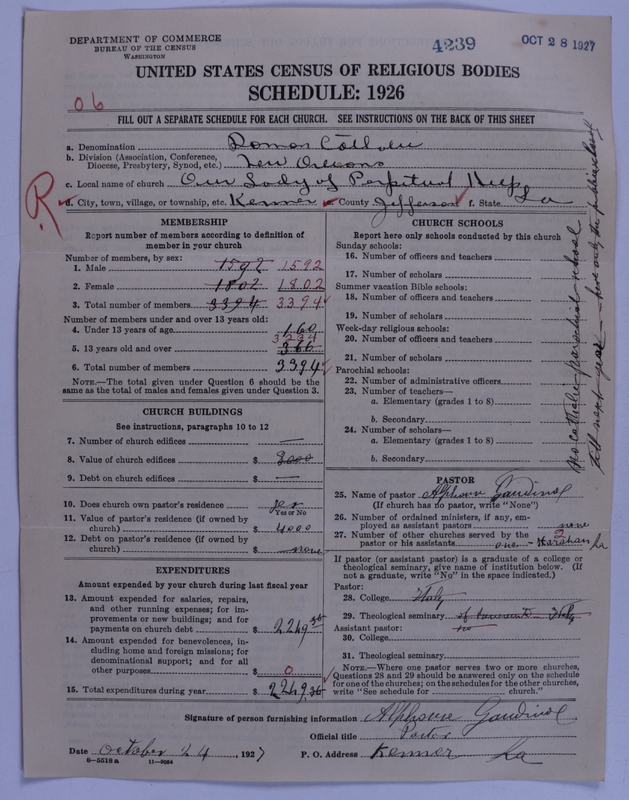 DEPARTMENT OF COMMERCE
BUREAU OF THE CENSUS
WASHINGTON
4239
OCT 28 1927
UNITED STATES CENSUS OF RELIGIOUS BODIES
SCHEDULE: 1926
06
FILL OUT A SEPARATE SCHEDULE FOR EACH CHURCH. SEE INSTRUCTIONS ON THE BACK OF THIS SHEET
R
a. Denomination Roman Catholic
b. Division (Association, Conference, Diocese, Presbytery, Synod, etc.) New Orleans
c. Local name of church Our Lady of Perpetual Help
d. City, town, village, or township, etc. Kenner County Jefferson f. State La
MEMBERSHIP
Report number of members according to definition of member in your church
Number of members, by sex:
1. Male 1592 1592
2. Female 1802 1802
3. Total number of members 3394 3394
Number of members under and over 13 years old:
4. Under 13 years of age 160
5. 13 years old and over 366 3234
6. Total number of members 3394
NOTE.—The total given under Question 6 should be the same as the total of males and females given under Question 3.
CHURCH BUILDINGS
See instructions, paragraphs 10 to 12
7. Number of church edifices —
8. Value of church edifices $ 8000
9. Debt on church edifices $ —
10. Does church own pastor's residence yes
Yes or No
11. Value of pastor's residence (if owned by church) $ 4000
12. Debt on pastor's residence (if owned by church) $ none
EXPENDITURES
Amount expended by your church during last fiscal year
13. Amount expended for salaries, repairs, and other running expenses; for improvements or new buildings; and for payments on church debt $ 2249.36
14. Amount expended for benevolences, including home and foreign missions; for denominational support; and for all other purposes $ 0
15. Total expenditures during year $ 2249.36
CHURCH SCHOOLS
Report here only schools conducted by this church
Sunday schools:
16. Number of officers and teachers
17. Number of scholars
Summer vacation Bible schools:
18. Number of officers and teachers
19. Number of scholars
Week-day religious schools:
20. Number of officers and teachers
21. Number of scholars
Parochial schools:
22. Number of administrative officers
23. Number of teachers—
a. Elementary (grades 1 to 8)
b. Secondary
24. Number of scholars—
a. Elementary (grades 1 to 8)
b. Secondary
no catholic parochial school
till next year — have only the
PASTOR
25. Name of pastor Alphonse Gaudinol
(If church has no pastor, write "None")
26. Number of ordained ministers, if any, employed as assistant pastors none
27. Number of other churches served by the pastor or his assistants 2 one - Harahan La
If pastor (or assistant pastor) is a graduate of a college or theological seminary, give name of institution below. (If not a graduate, write "No" in the space indicated.)
Pastor:
28. College Italy
29. Theological seminary Italy
Assistant pastor: no
30. College
31. Theological seminary
NOTE.—Where one pastor serves two or more churches, Questions 28 and 29 should be answered only on the schedule for one of the churches; on the schedules for the other churches, write "See schedule for church."
Signature of person furnishing information Alphonse Gaudinol
Official title Pastor
Date October 24, 1927 P. O. Address Kenner La
6—5518a 11—9054